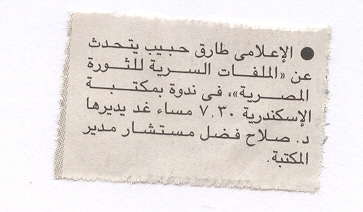 ● الإعلامى طارق حبيب يتحدث
عن «الملفات السرية للثورة
المصرية»، فى ندوة بمكتبة
الإسكندرية ٧.٣٠ مساء غد يديرها
د. صلاح فضل مستشار مدير
المكتبة.